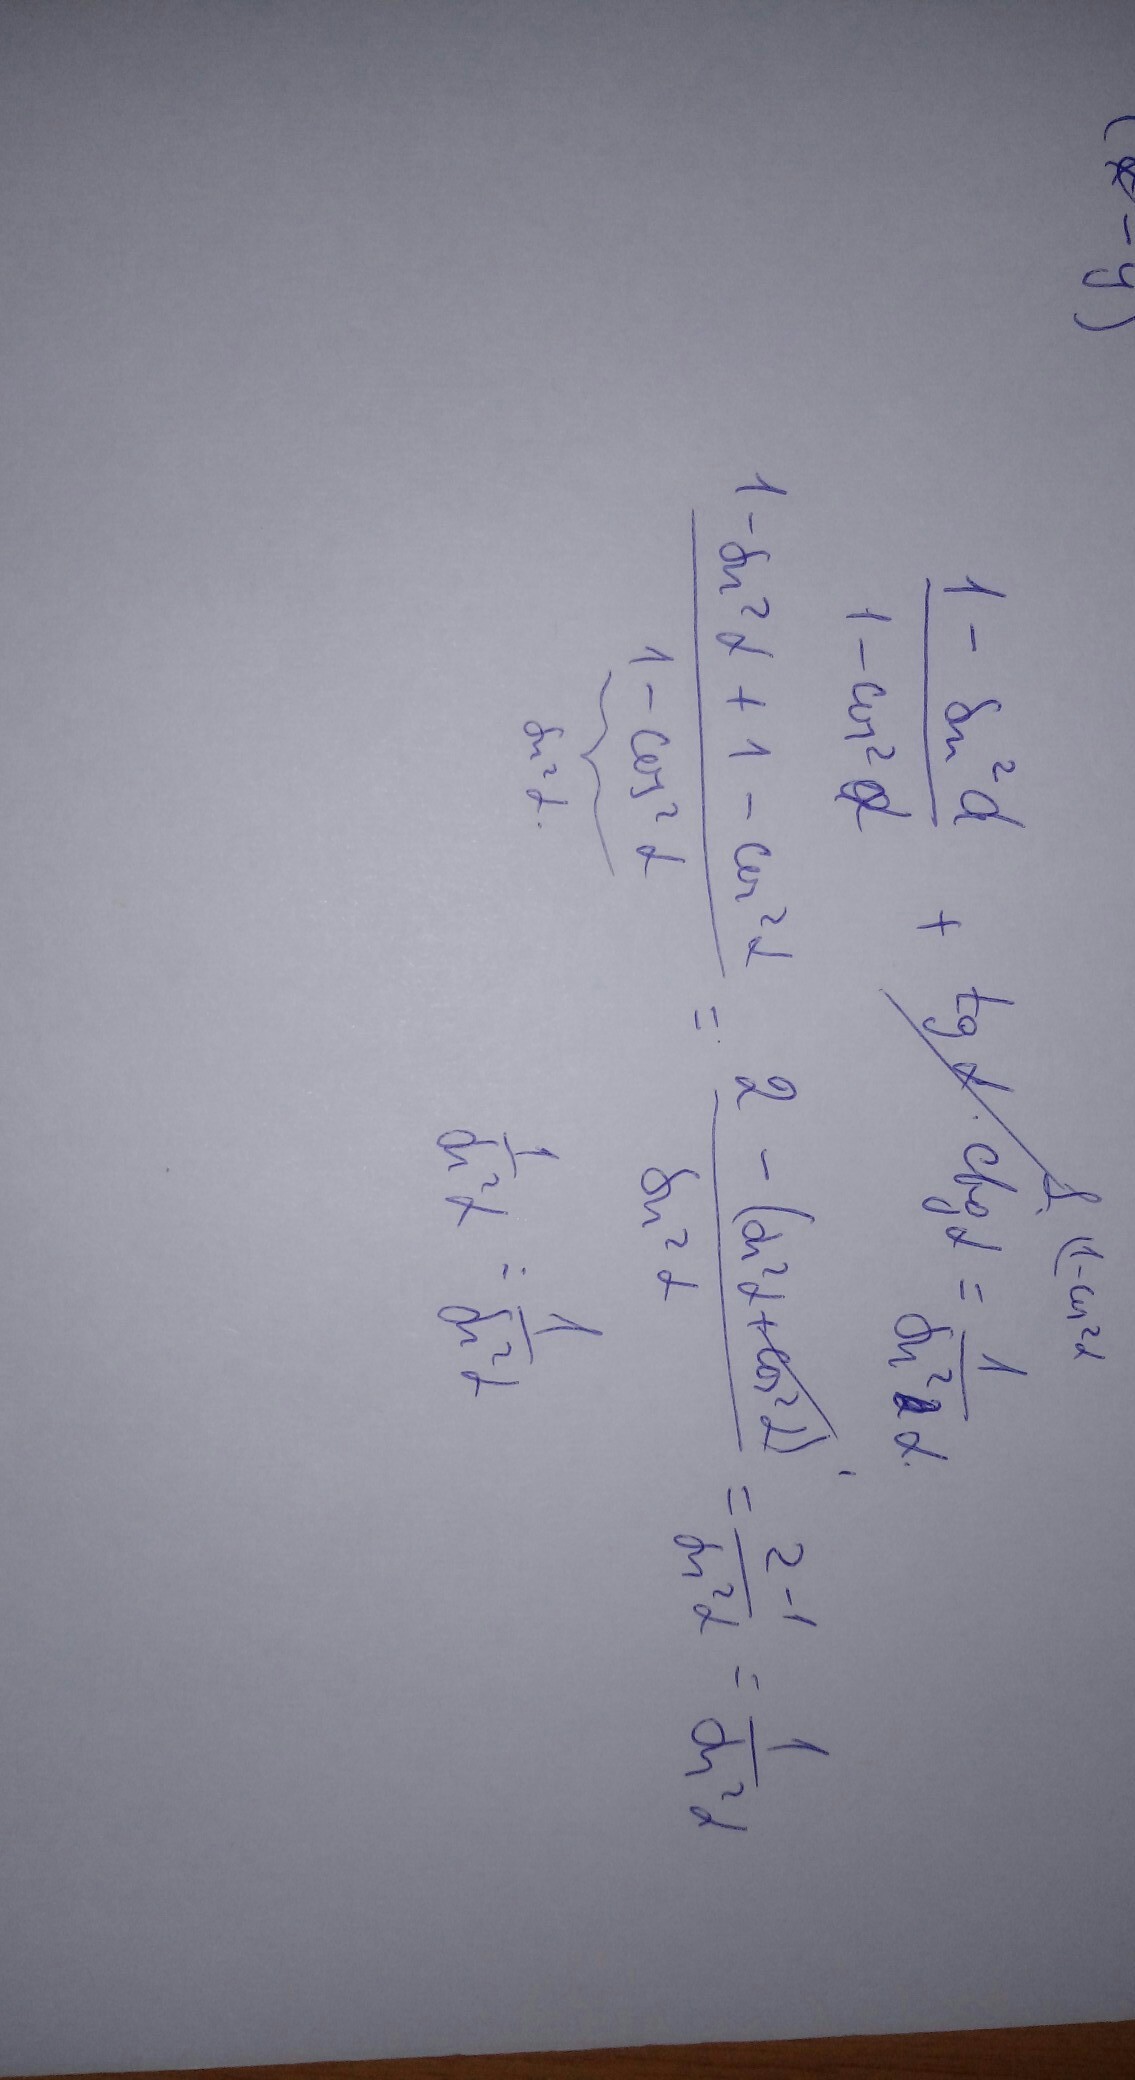 (x - y)
(1-cos²α
1 - sin²α / 1 - cos²α + tg α · ctg α = 1 / sin²α.
1 - sin²α + 1 - cos²α / 1 - cos²α = 2 - (sin²α + cos²α) / sin²α = 2-1 / sin²α = 1 / sin²α
sin²α.
1 / sin²α = 1 / sin²α